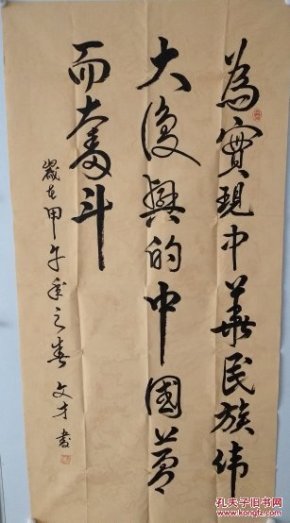 為實現中華民族伟
大復興的中國夢
而奮斗
歲在甲午年之春 文才書
孔夫子旧书网
www.kongfz.com